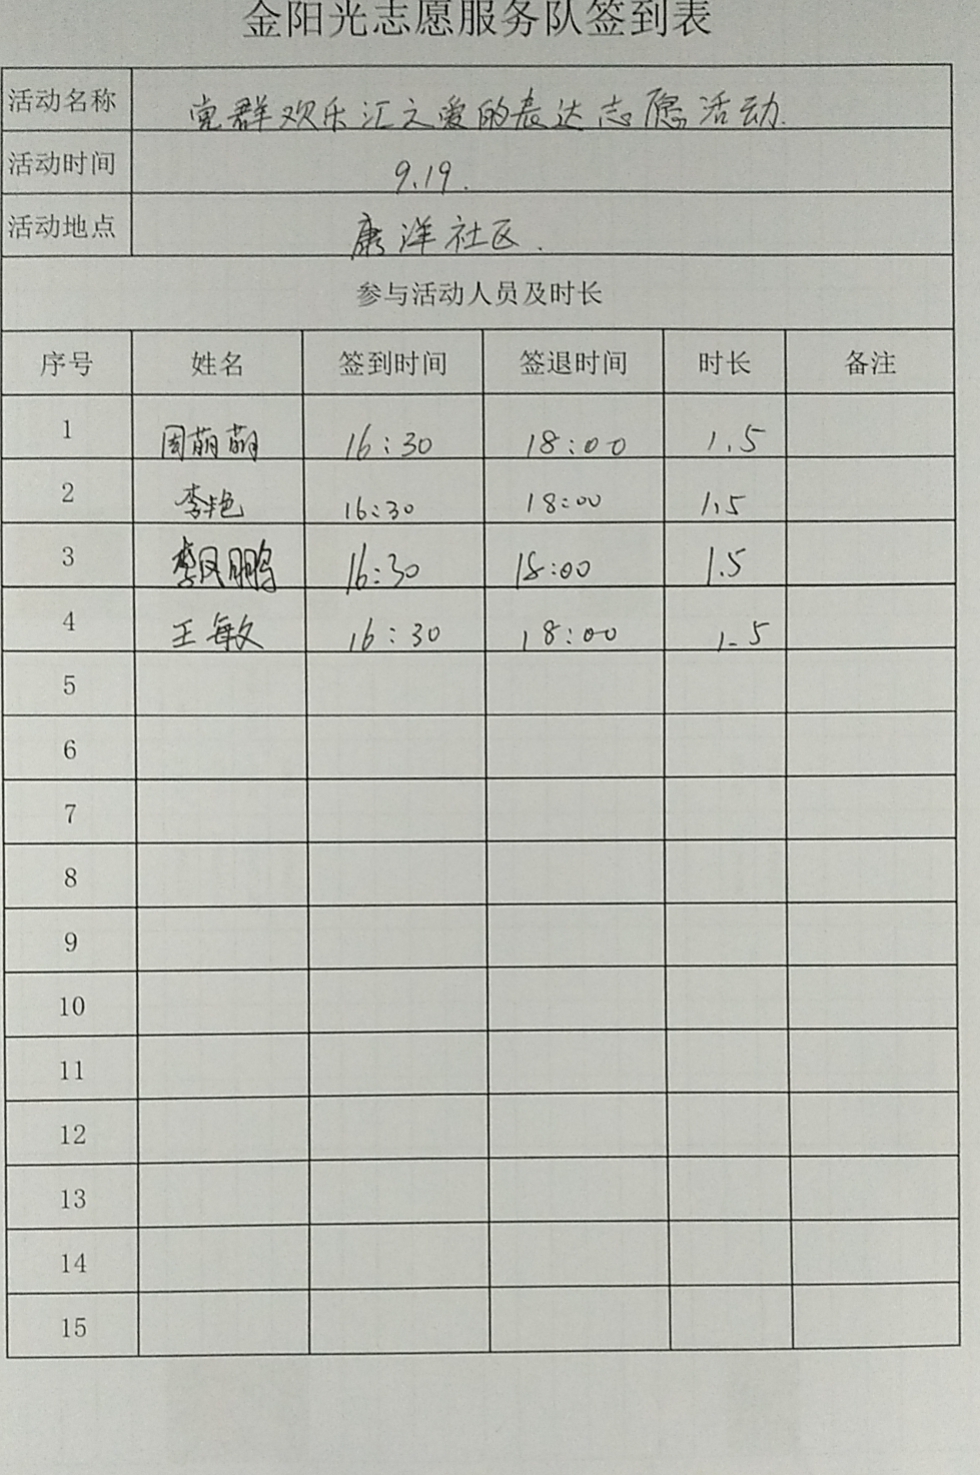 金阳光志愿服务队签到表
活动名称 党群欢乐汇之爱的表达志愿活动.
活动时间 9.19.
活动地点 康洋社区.
参与活动人员及时长
序号 姓名 签到时间 签退时间 时长 备注
1 周萌萌 16:30 18:00 1.5
2 李艳 16:30 18:00 1.5
3 李凤鹏 16:30 18:00 1.5
4 王敏 16:30 18:00 1.5
5
6
7
8
9
10
11
12
13
14
15